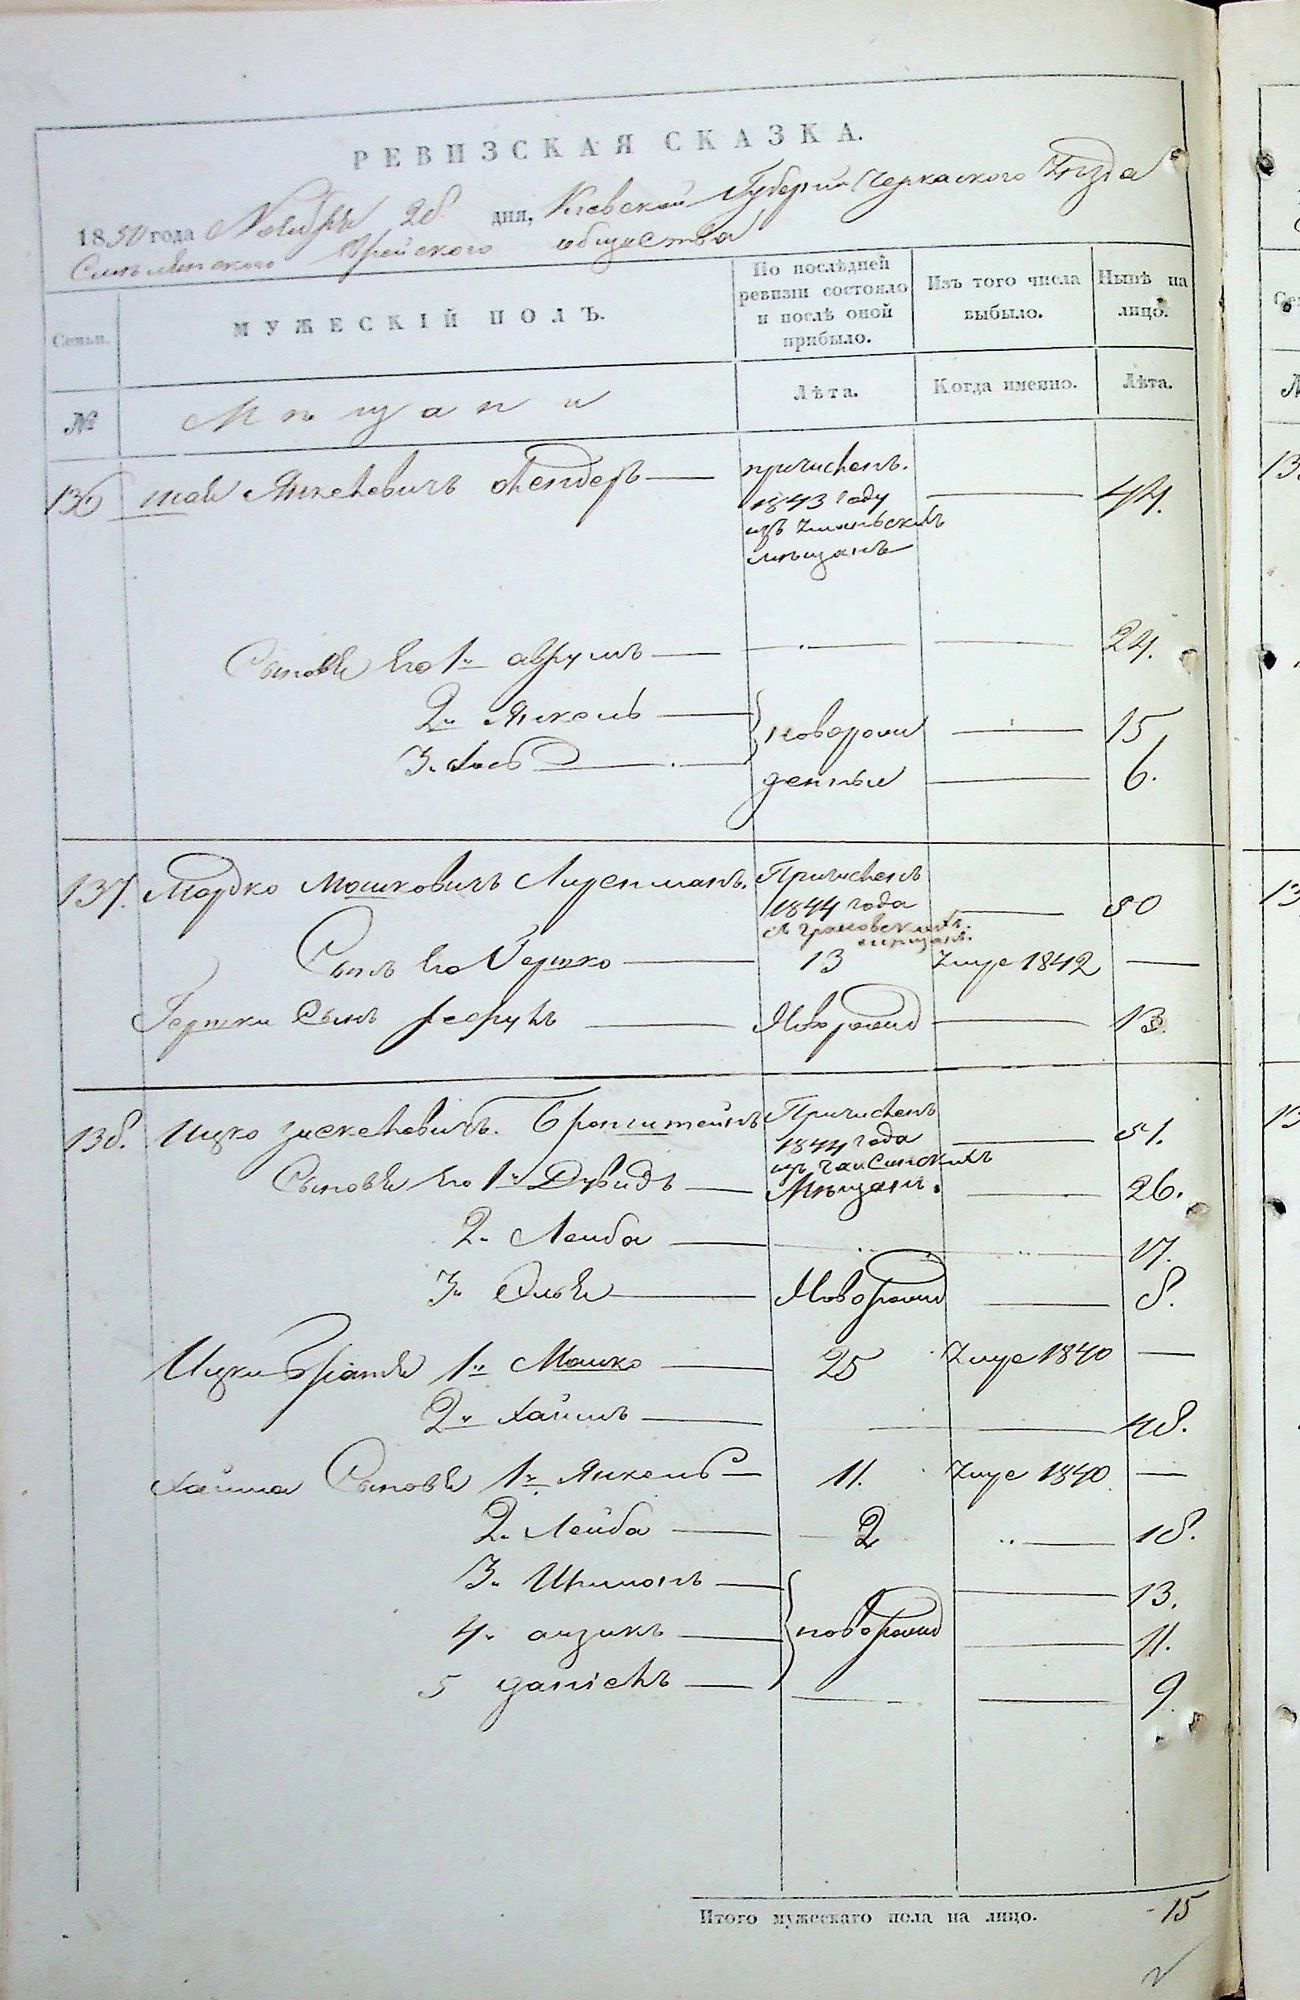 РЕВИЗСКАЯ СКАЗКА.
1850 года Ноября 28 дня, Киевской Губернии Черкаского Уезда
Смелянского Еврейского общества
Семьи.
МУЖЕСКІЙ ПОЛЪ.
По послѣдней ревизіи состояло и послѣ оной прибыло.
Изъ того числа выбыло.
Нынѣ на лицо.
№
Мещане
Лѣта.
Когда именно.
Лѣта.
136 Янкелевичъ Лендеръ причисленъ 1843 году изъ мещанъ 44.
Сыновья его 1й Аврумъ 24.
2й Янкель новорож 15
3й Іось денные 6.
137. Мордко Мошковичъ Причисленъ 1844 года мещанъ. 50
Сынъ его Гершко 13 Умре 1842
Гершки Сынъ Новорожд 13
138. Ицко Бронштейнъ Причисленъ 1844 года изъ Мещанъ. 51.
Сыновья его 1й Дувидъ 26.
2й Лейба 17.
3й Эля Новорожд 8.
Ицки Братья 1й Мошко 25 Умре 1840
2й Хаимъ 48.
Хаима Сыновья 1й Янкель 11. Умре 1840
2й Лейба 2 18.
3й Шимонъ 13.
4й Айзикъ новорожд 11.
5 Даніелъ 9.
Итого мужескаго пола на лицо. 15